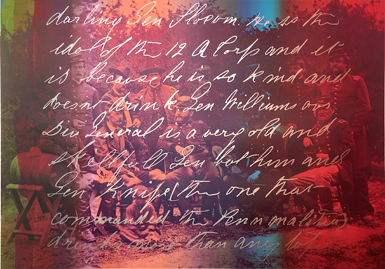 darling Gen Slocum. He is the
idol of the 12 A Corps and it
is because he is so kind and
doesnt drink. Gen Williams our
Div General is a very old and
skillfull Gen but him and
Gen Knipe (the one that
commanded the Penn malitia)
drink more than any